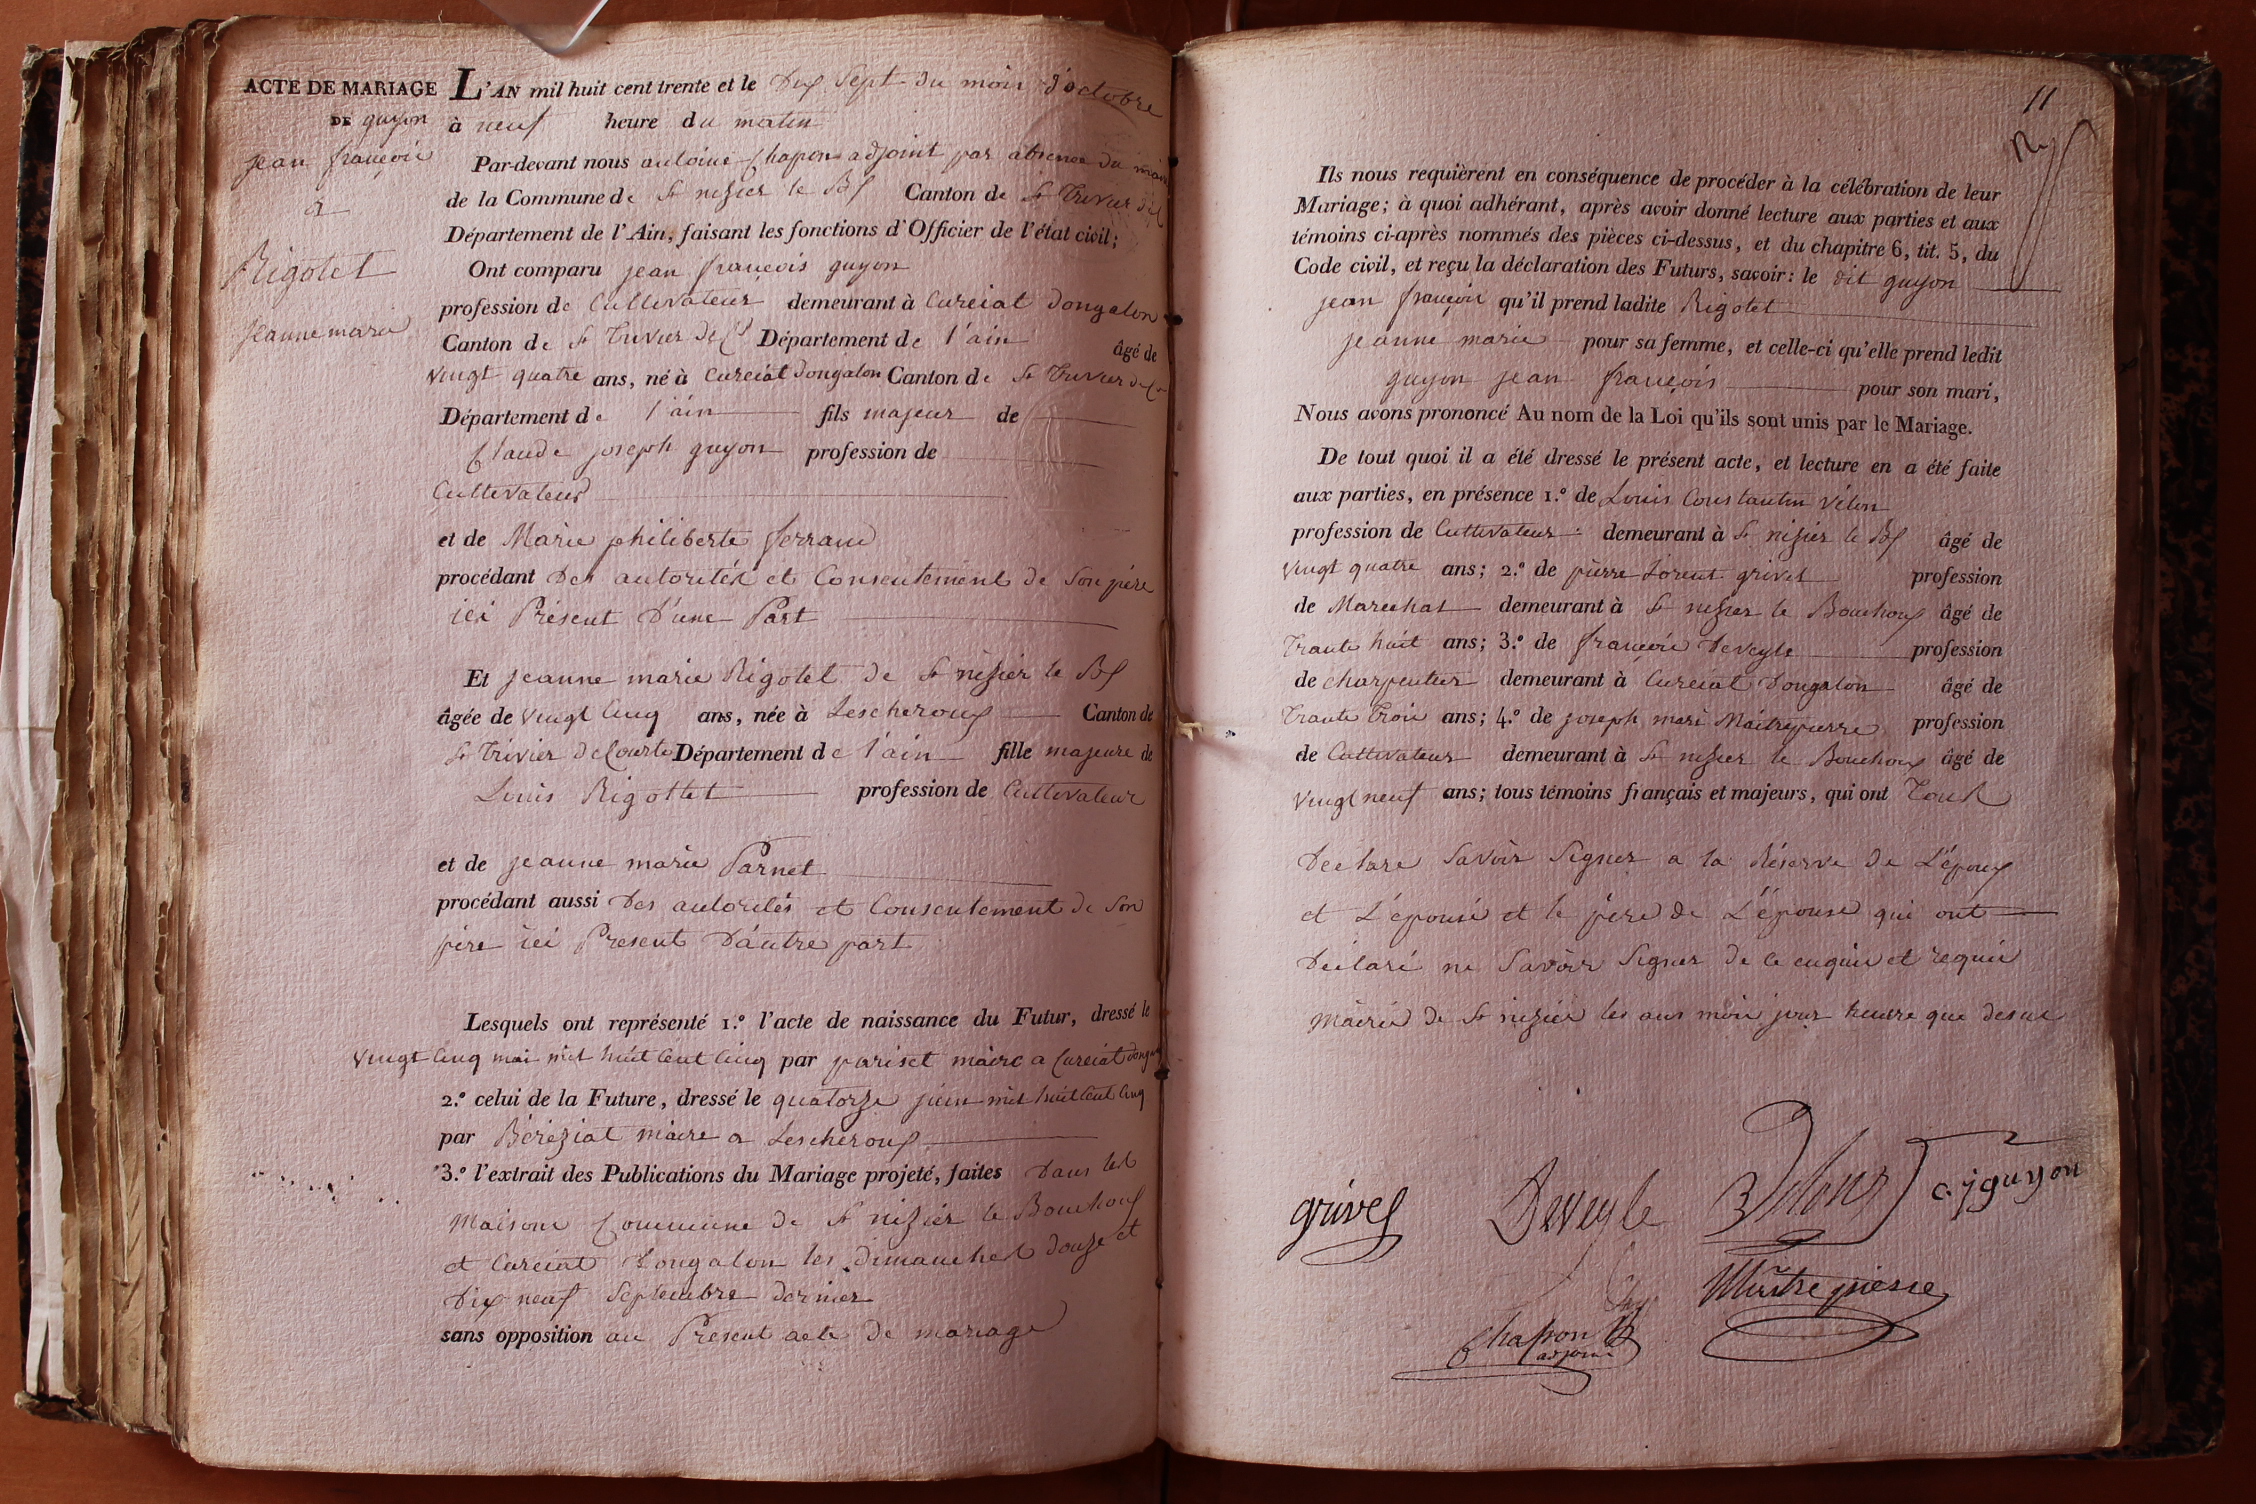 ACTE DE MARIAGE
DE guyon
jean françois
a
Rigotet
jeanne marie
L'AN mil huit cent trente et le Dix Sept du mois d'octobre
à neuf heure du matin
Par-devant nous antoine Chapon adjoint par absence du maire
de la Commune de St nizier le Bx Canton de St Trivier de C
Département de l'Ain, faisant les fonctions d'Officier de l'état civil;
Ont comparu jean francois guyon
profession de Cultivateur demeurant à Curciat dongalon
Canton de St Trivier de Ct Département de l'ain âgé de
vingt quatre ans, né à Curciat dongalon Canton de St Trivier de C
Département de l'ain fils majeur de
Claude joseph guyon profession de
Cultivateur
et de Marie philiberte ferrand
procédant Des autorités et Consentement de Son père
ici Présent D'une Part
Et jeanne marie Rigotet de St nizier le Bx
âgée de vingt Cinq ans, née à Lescheroux Canton de
St Trivier de Courte Département de l'ain fille majeure de
Louis Rigottet profession de Cultivateur
et de jeanne marie Parnet
procédant aussi Des autorités et Consentement de Son
père ici Present D'autre part
Lesquels ont représenté 1.º l'acte de naissance du Futur, dressé le
vingt Cinq mai mil huit Cent Cinq par pariset maire a Curciat dongalon
2.º celui de la Future, dressé le quatorze juin mil huit Cent Cinq
par Béréziat maire a Lescheroux
3.º l'extrait des Publications du Mariage projeté, faites Dans les
Maisons Commune de St nizier le Bouchoux
et Curciat Dongalon les dimanches douze et
Dix neuf Septembre dernier
sans opposition au Present acte de mariage
11
Ils nous requièrent en conséquence de procéder à la célébration de leur
Mariage; à quoi adhérant, après avoir donné lecture aux parties et aux
témoins ci-après nommés des pièces ci-dessus, et du chapitre 6, tit. 5, du
Code civil, et reçu la déclaration des Futurs, savoir: le dit guyon
jean françois qu'il prend ladite Rigotet
jeanne marie pour sa femme, et celle-ci qu'elle prend ledit
guyon jean françois pour son mari,
Nous avons prononcé Au nom de la Loi qu'ils sont unis par le Mariage.
De tout quoi il a été dressé le présent acte, et lecture en a été faite
aux parties, en présence 1.º de Louis Constantin Vélon
profession de Cultivateur demeurant à St nizier le Bx âgé de
vingt quatre ans; 2.º de pierre Lorent grivet profession
de Marechat demeurant à St nizier le Bouchoux âgé de
Trante huit ans; 3.º de françois Deveyle profession
de charpentier demeurant à Curciat Dongalon âgé de
Trante Trois ans; 4.º de joseph mari Maitrepierre profession
de Cultivateur demeurant à St nizier le Bouchoux âgé de
vingt neuf ans; tous témoins français et majeurs, qui ont Tous
Declare Savoir Signer a la Réserve de L'époux
et L'épouse et le père de L'épouse qui ont
Déclaré ne Savoir Signer de ce enquis et requis
Mairie de St nizier les ans mois jour heure que desus
grivet Deveyle Velon c. j guyon
Maitrepierre
Chapon
adjoint